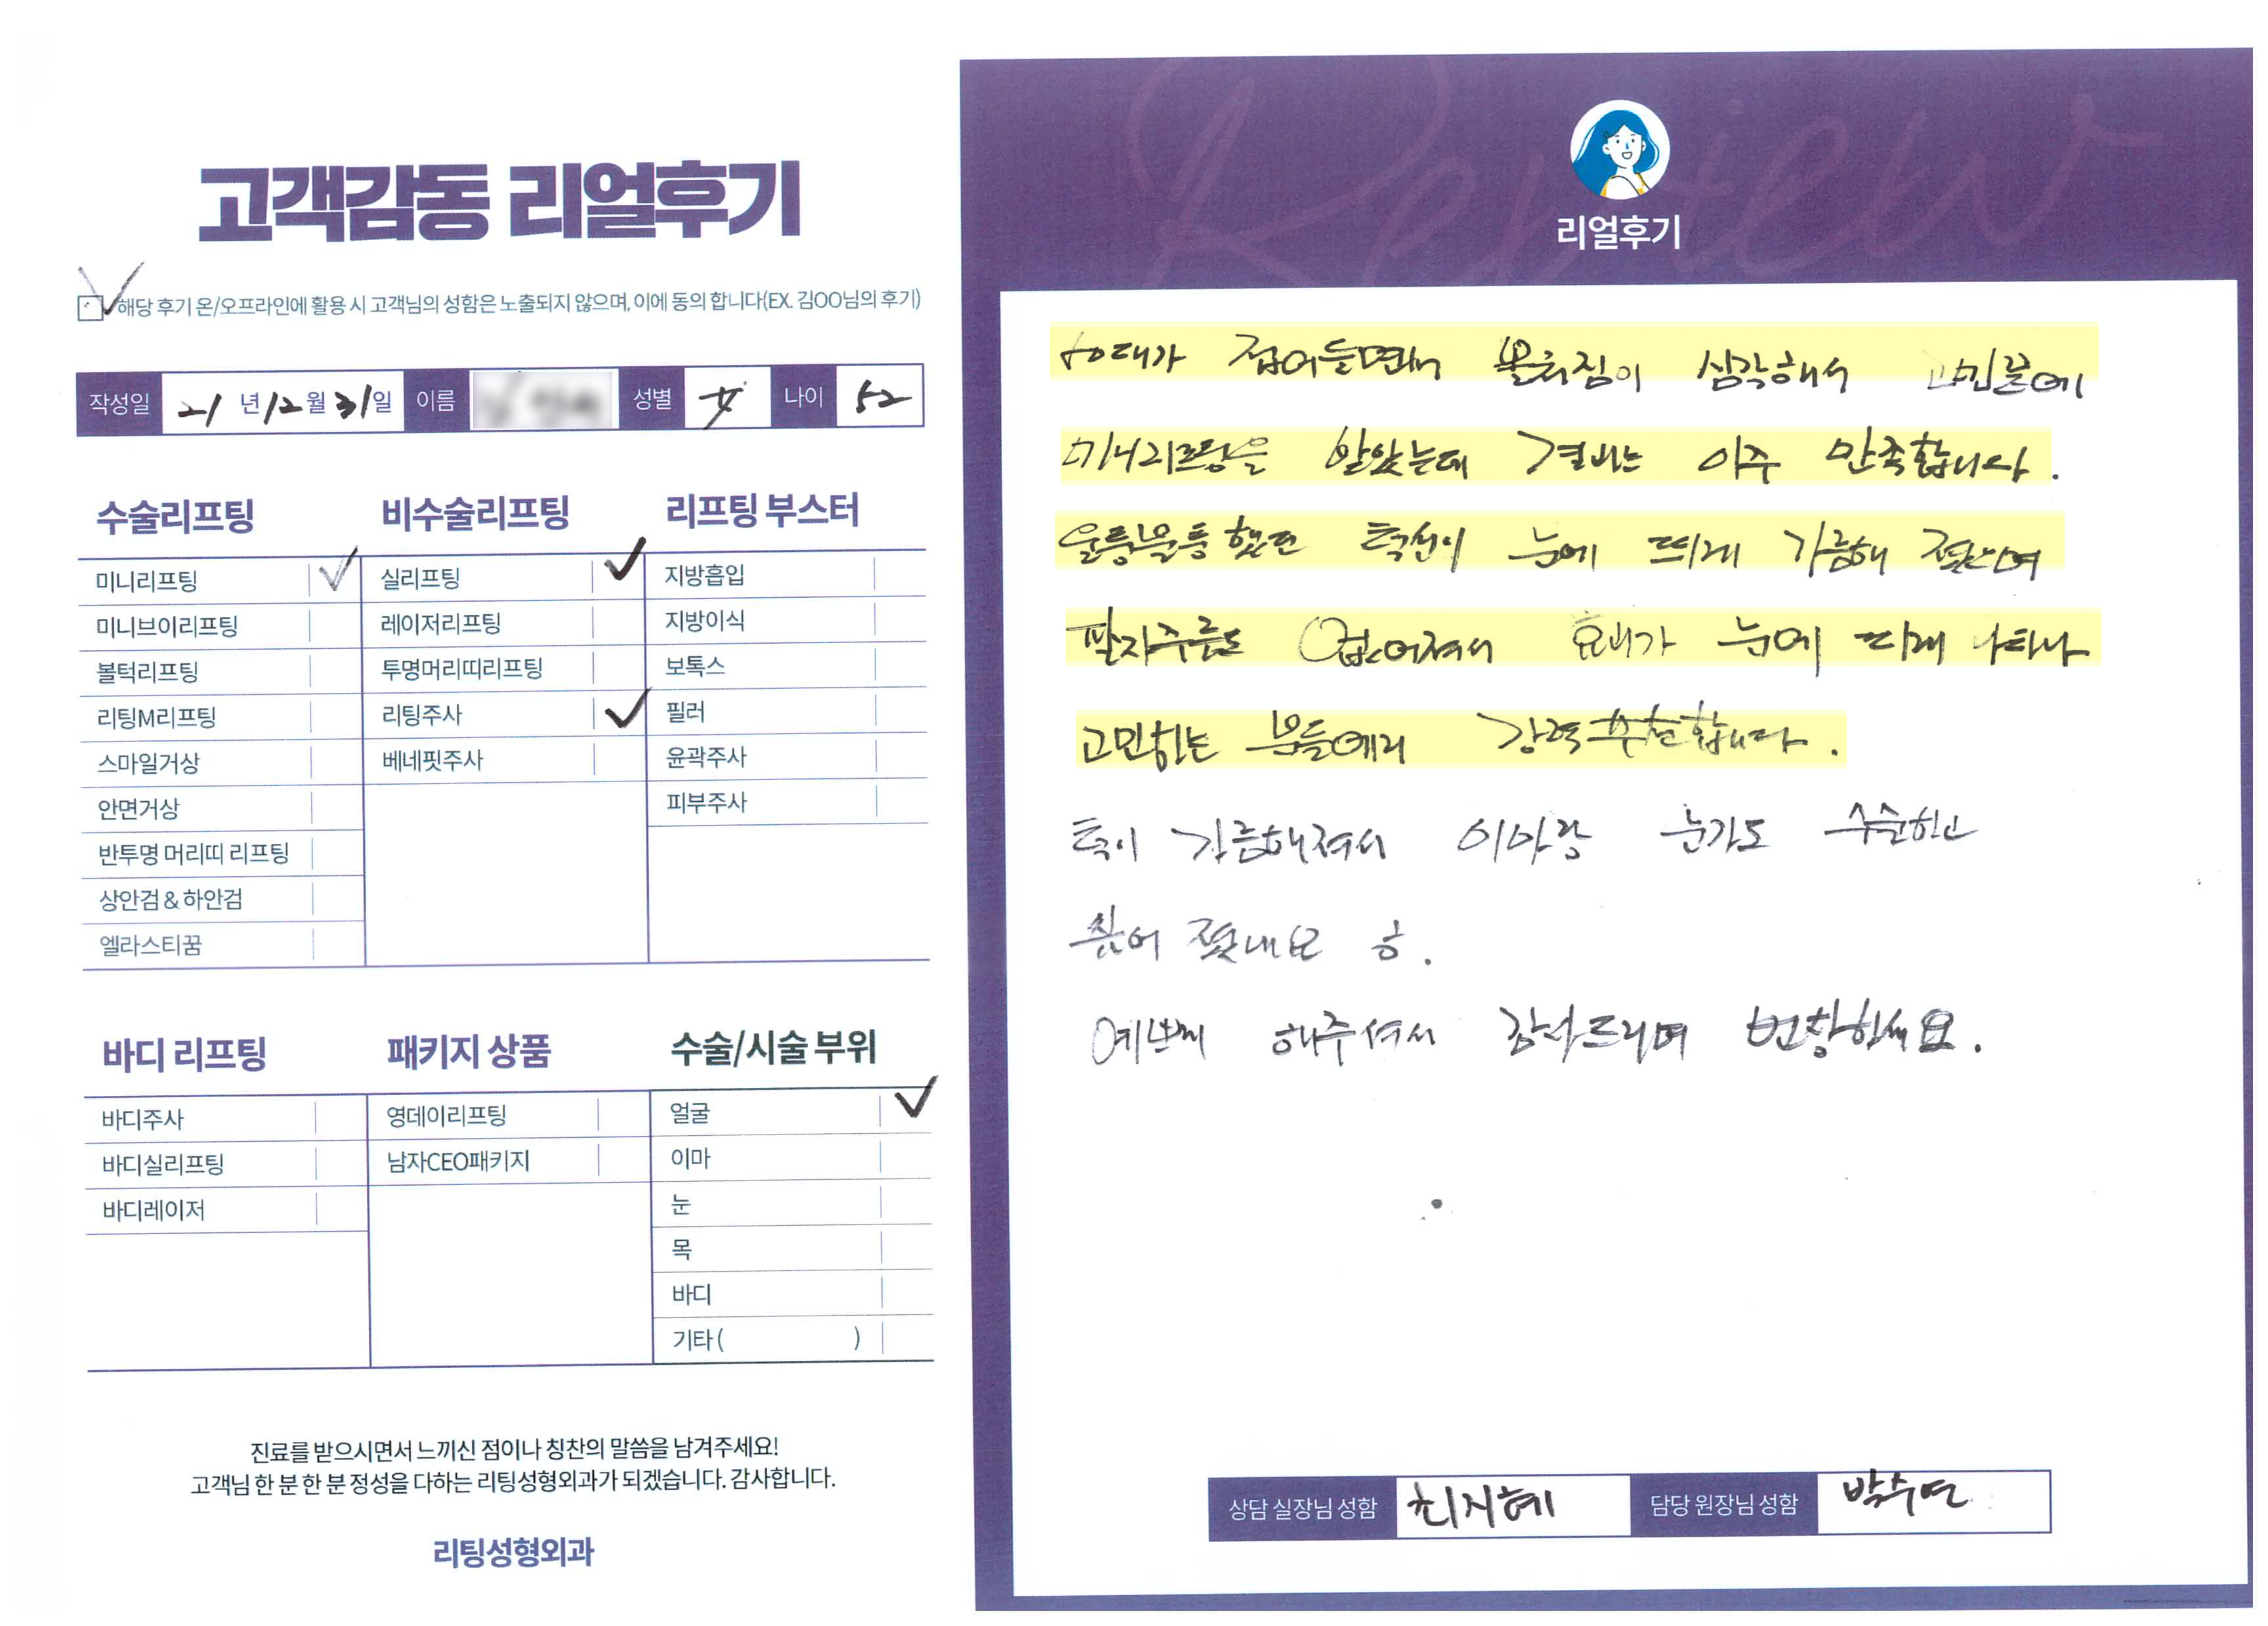 고객감동 리얼후기
해당 후기 온/오프라인에 활용 시 고객님의 성함은 노출되지 않으며, 이에 동의 합니다(EX. 김OO님의 후기)
작성일 21 년 12 월 31 일 이름 성별 女 나이 52
수술리프팅
미니리프팅
미니브이리프팅
볼턱리프팅
리팅M리프팅
스마일거상
안면거상
반투명 머리띠 리프팅
상안검 & 하안검
엘라스티꿈
비수술리프팅
실리프팅
레이저리프팅
투명머리띠리프팅
리팅주사
베네핏주사
리프팅 부스터
지방흡입
지방이식
보톡스
필러
윤곽주사
피부주사
바디 리프팅
바디주사
바디실리프팅
바디레이저
패키지 상품
영데이리프팅
남자CEO패키지
수술/시술 부위
얼굴
이마
눈
목
바디
기타 ( )
진료를 받으시면서 느끼신 점이나 칭찬의 말씀을 남겨주세요!
고객님 한 분 한 분 정성을 다하는 리팅성형외과가 되겠습니다. 감사합니다.
리팅성형외과
Review
리얼후기
50대가 접어들면서 볼처짐이 심각해서 고민끝에
미니리프팅을 알았는데 결과는 아주 만족합니다.
울퉁불퉁 했던 턱선이 눈에 띄게 갸름해 졌으며
팔자주름도 없어져서 효과가 눈에 띄게 나타나
고민하는 분들에게 강력 추천합니다.
턱이 갸름해져서 이마랑 눈가도 수술하고
싶어 졌네요 ㅎ.
예쁘게 해주셔서 감사드리며 번창하세요.
상담 실장님 성함 최지혜 담당 원장님 성함 박수연